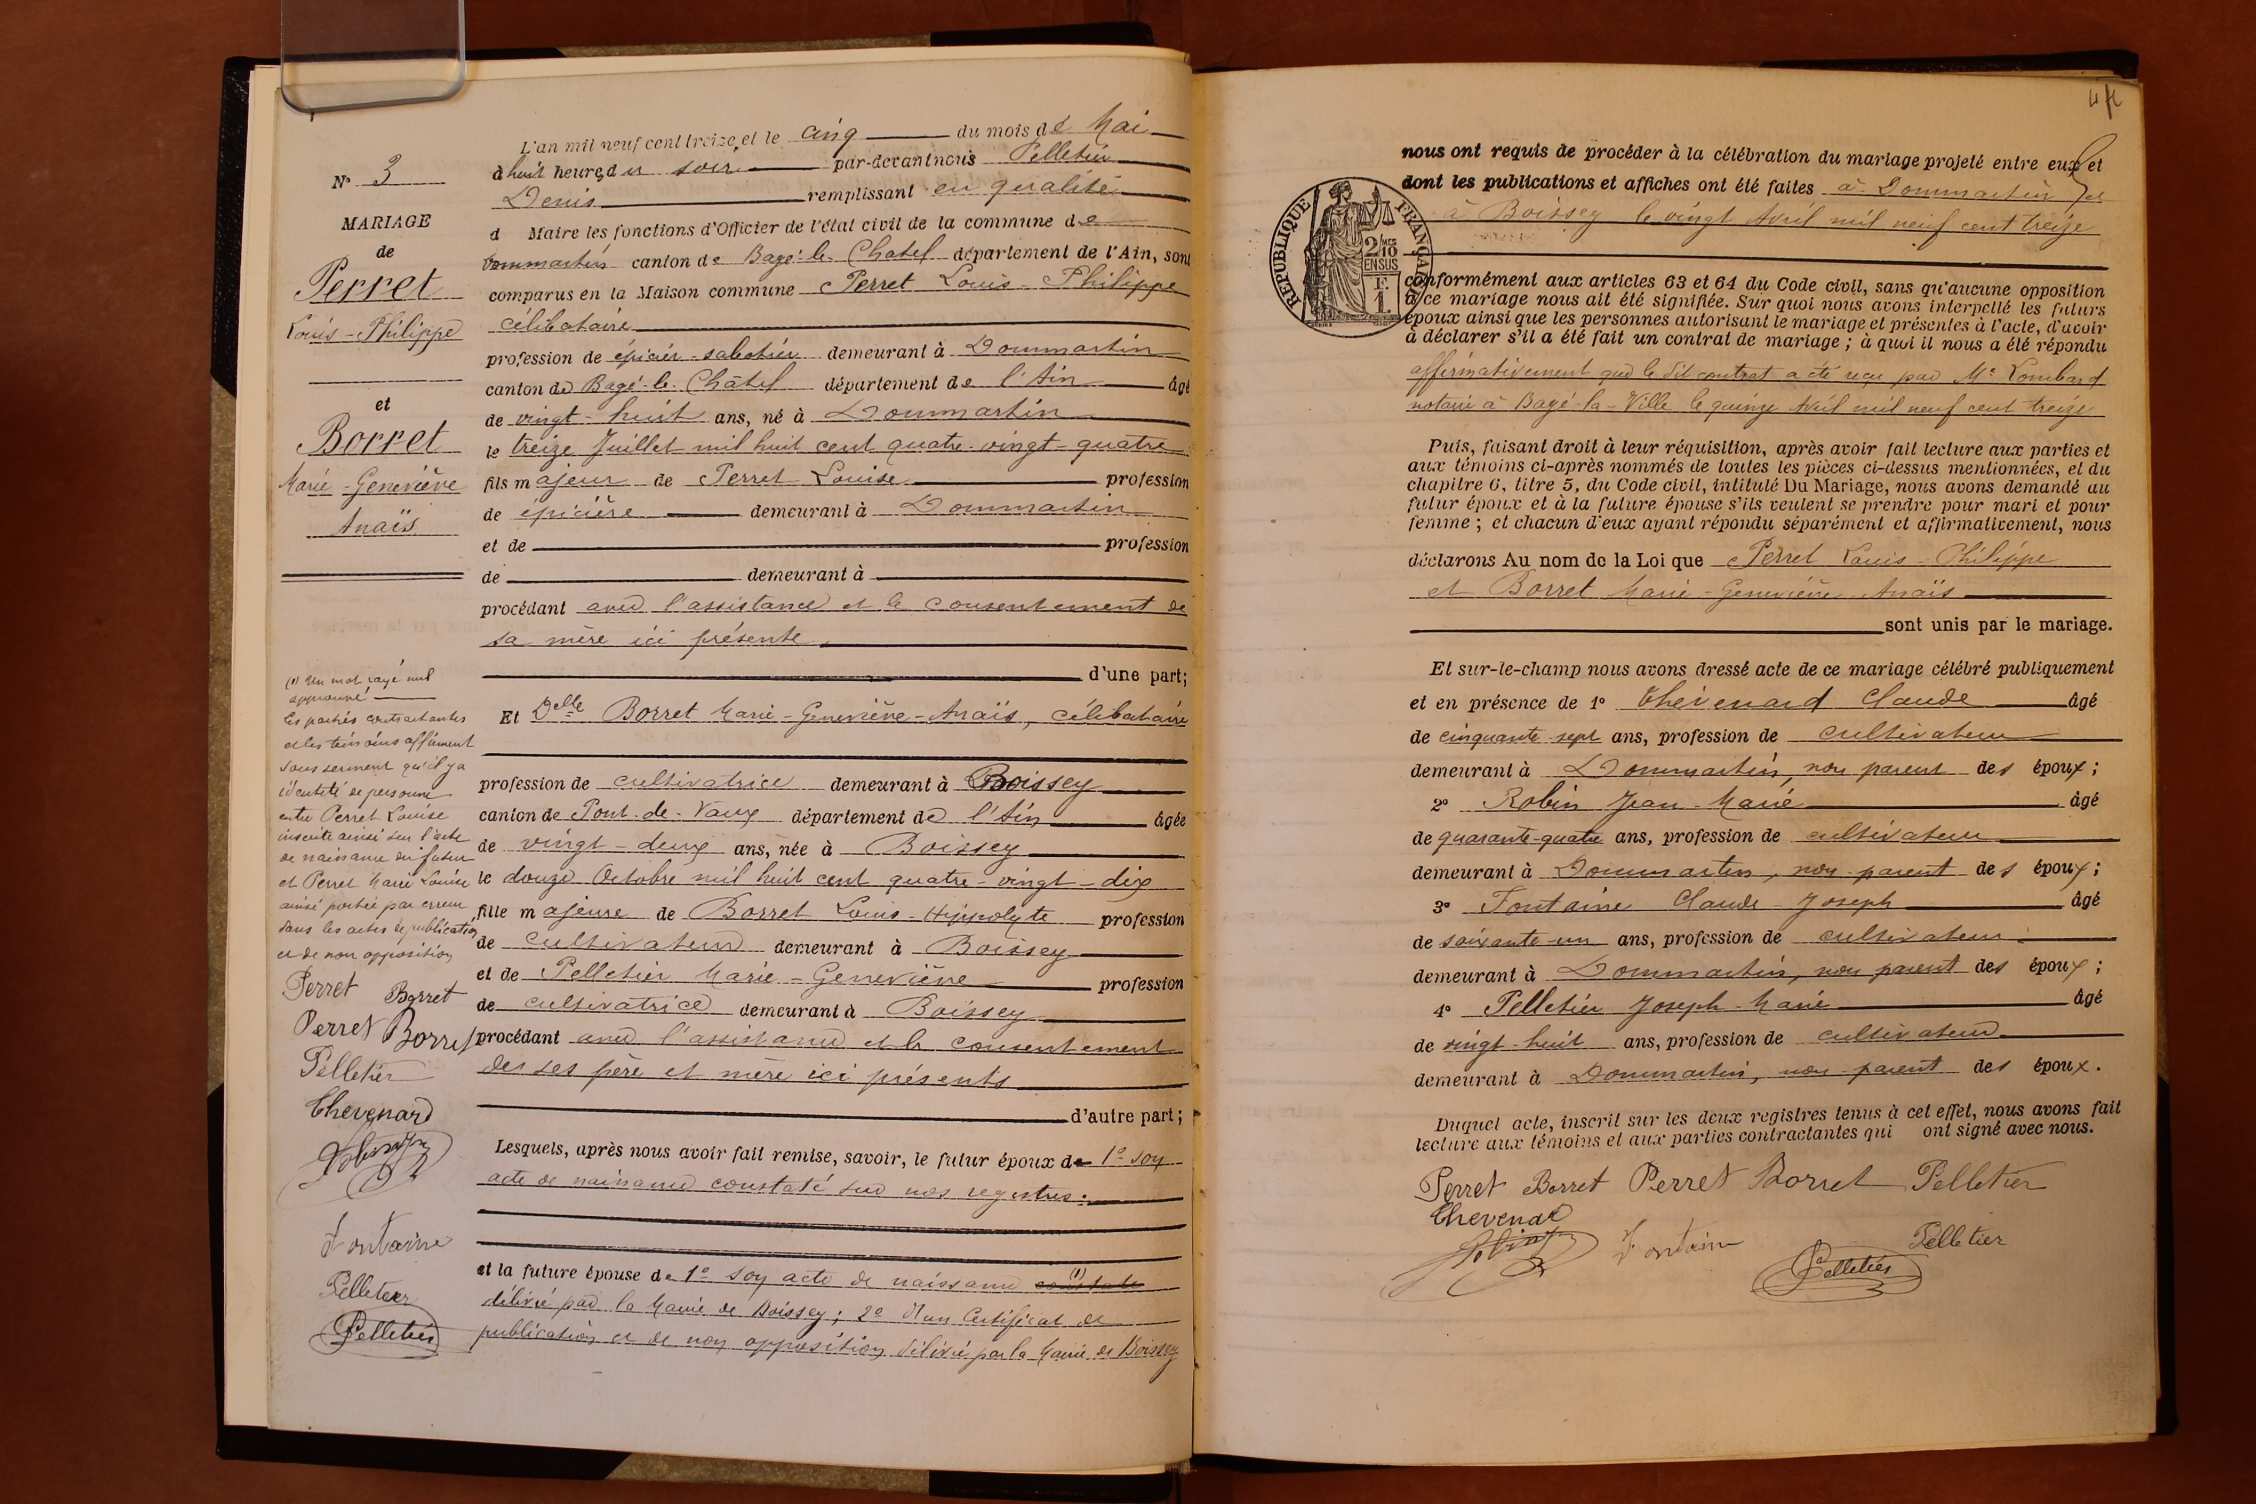 N° 3
MARIAGE
de
Perret
Louis-Philippe
et
Borret
Marie-Geneviève
Anaïs
(1) Un mot rayé nul
approuvé
Les parties contractantes
et les témoins affirment
sous serment qu'il y a
identité de personne
entre Perret Louise
inscrite ainsi sur l'acte
de naissance du futur
et Perret Marie Louise
ainsi portée par erreur
dans les actes de publication
et de non opposition
Perret Borret
Perret Borret
Pelletier
Chevenard
Robin
Fontaine
Pelletier
Pelletier
L'an mil neuf cent treize et le cinq du mois de Mai
à huit heures du soir par-devant nous Pelletier
Denis remplissant en qualité
d Maire les fonctions d'Officier de l'état civil de la commune de
Dommartin canton de Bagé-le-Chatel département de l'Ain, sont
comparus en la Maison commune Perret Louis-Philippe
célibataire
profession de épicier-sabotier demeurant à Dommartin
canton de Bagé-le-Châtel département de l'Ain âgé
de vingt-huit ans, né à Dommartin
le treize Juillet mil huit cent quatre-vingt-quatre
fils majeur de Perret Louise profession
de épicière demeurant à Dommartin
et de profession
de demeurant à
procédant avec l'assistance et le consentement de
sa mère ici présente
d'une part;
Et Delle Borret Marie-Geneviève-Anaïs, célibataire
profession de cultivatrice demeurant à Boissey
canton de Pont-de-Vaux département de l'Ain âgée
de vingt-deux ans, née à Boissey
le douze Octobre mil huit cent quatre-vingt-dix
fille majeure de Borret Louis-Hippolyte profession
de cultivateur demeurant à Boissey
et de Pelletier Marie-Geneviève profession
de cultivatrice demeurant à Boissey
procédant avec l'assistance et le consentement
des ses père et mère ici présents
d'autre part;
Lesquels, après nous avoir fait remise, savoir, le futur époux de 1° son
acte de naissance constaté sur nos registres.
et la future épouse de 1° son acte de naissance (1) constaté
délivré par la Mairie de Boissey; 2° d'un Certificat de
publication et de non opposition délivré par la Mairie de Boissey
4
nous ont requis de procéder à la célébration du mariage projeté entre eux et
dont les publications et affiches ont été faites à Dommartin et
à Boissey le vingt Avril mil neuf cent treize
RÉPUBLIQUE FRANÇAISE
2/10 EN SUS
F. 1.
conformément aux articles 63 et 64 du Code civil, sans qu'aucune opposition
à ce mariage nous ait été signifiée. Sur quoi nous avons interpellé les futurs
époux ainsi que les personnes autorisant le mariage et présentes à l'acte, d'avoir
à déclarer s'il a été fait un contrat de mariage; à quoi il nous a été répondu
affirmativement que le dit contrat a été reçu par Me Lombard
notaire à Bagé-la-Ville le quinze Avril mil neuf cent treize
Puis, faisant droit à leur réquisition, après avoir fait lecture aux parties et
aux témoins ci-après nommés de toutes les pièces ci-dessus mentionnées, et du
chapitre 6, titre 5, du Code civil, intitulé Du Mariage, nous avons demandé au
futur époux et à la future épouse s'ils veulent se prendre pour mari et pour
femme; et chacun d'eux ayant répondu séparément et affirmativement, nous
déclarons Au nom de la Loi que Perret Louis-Philippe
et Borret Marie-Geneviève-Anaïs
sont unis par le mariage.
Et sur-le-champ nous avons dressé acte de ce mariage célébré publiquement
et en présence de 1° Chevenard Claude âgé
de cinquante-sept ans, profession de cultivateur
demeurant à Dommartin, non parent des époux;
2° Robin Jean-Marie âgé
de quarante-quatre ans, profession de cultivateur
demeurant à Dommartin, non parent des époux;
3° Fontaine Claude-Joseph âgé
de soixante-un ans, profession de cultivateur
demeurant à Dommartin, non parent des époux;
4° Pelletier Joseph-Marie âgé
de vingt-huit ans, profession de cultivateur
demeurant à Dommartin, non parent des époux.
Duquel acte, inscrit sur les deux registres tenus à cet effet, nous avons fait
lecture aux témoins et aux parties contractantes qui ont signé avec nous.
Perret Borret Perret Borret Pelletier
Chevenard
Robin Fontaine Pelletier Pelletier